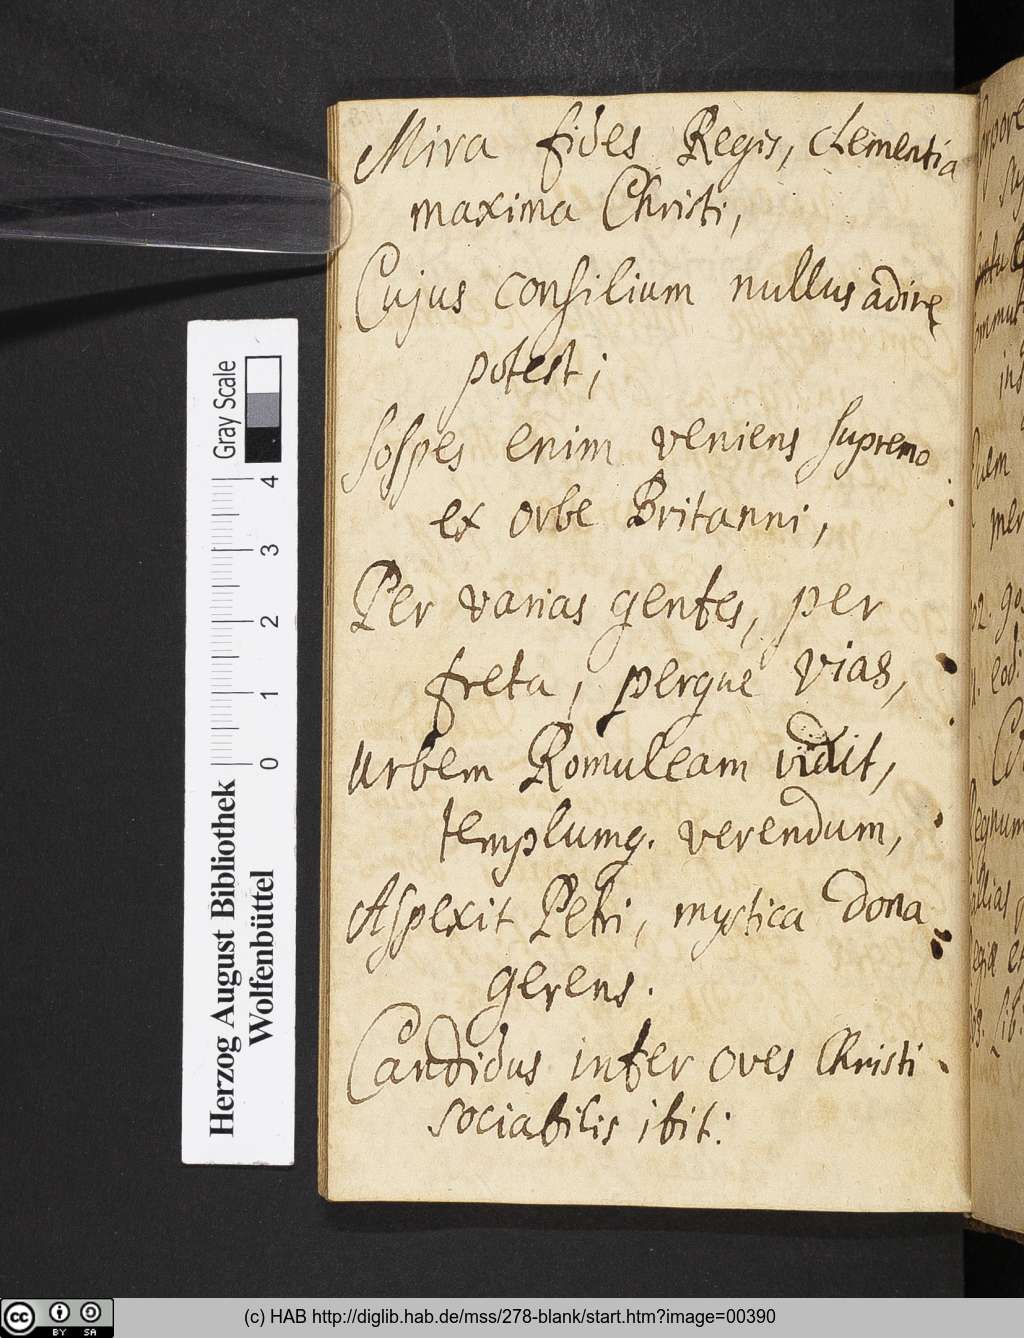 Mira fides Regis, clementia
maxima Christi,
Cujus consilium nullus adire
potest;
Sospes enim veniens supremo
ex orbe Britanni,
Per varias gentes, per
freta, perque vias,
Urbem Romuleam vidit,
templumq. verendum,
Aspexit Petri, mystica dona
gerens.
Candidus inter oves Christi
sociabilis ibit:
Gray Scale
0 1 2 3 4
Herzog August Bibliothek
Wolfenbüttel
cc BY SA
(c) HAB http://diglib.hab.de/mss/278-blank/start.htm?image=00390